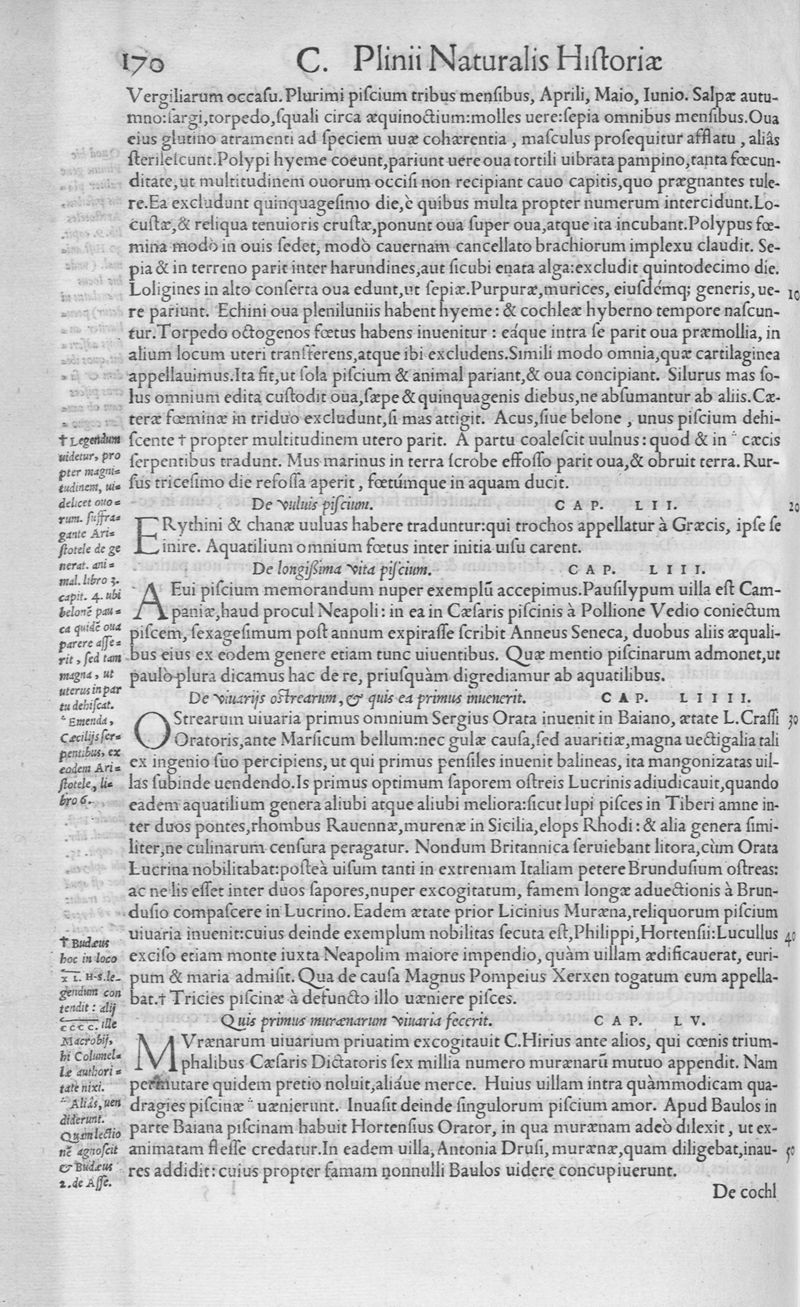 170 C. Plinii Naturalis Hiſtoriæ
Vergiliarum occaſu. Plurimi piſcium tribus menſibus, Aprili, Maio, Iunio. Salpæ autu-
mno: ſargi, torpedo, ſquali circa æquinoctium: molles uere: ſepia omnibus menſibus. Oua
eius glutino atramenti ad ſpeciem uuæ cohærentia, maſculus proſequitur afflatu, aliâs
ſterileſcunt. Polypi hyeme coeunt, pariunt uere oua tortili uibrata pampino, tanta fœcun-
ditate, ut multitudinem ouorum occiſi non recipiant cauo capitis, quo prægnantes tule-
re. Ea excludunt quinquageſimo die, è quibus multa propter numerum intercidunt. Lo-
cuſtæ, & reliqua tenuioris cruſtæ, ponunt oua ſuper oua, atque ita incubant. Polypus fœ-
mina modò in ouis ſedet, modò cauernam cancellato brachiorum implexu claudit. Se-
pia & in terreno parit inter harundines, aut ſicubi enata alga: excludit quintodecimo die.
Loligines in alto conſerta oua edunt, ut ſepiæ. Purpuræ, murices, eiuſdémq; generis, ue- 10
re pariunt. Echini oua pleniluniis habent hyeme: & cochleæ hyberno tempore naſcun-
tur. Torpedo octogenos fœtus habens inuenitur: eáque intra ſe parit oua præmollia, in
alium locum uteri tranſferens, atque ibi excludens. Simili modo omnia, quæ cartilaginea
appellauimus. Ita fit, ut ſola piſcium & animal pariant, & oua concipiant. Silurus mas ſo-
lus omnium edita cuſtodit oua, ſæpe & quinquagenis diebus, ne abſumantur ab aliis. Cæ-
teræ fœminæ in triduo excludunt, ſi mas attigit. Acus, ſiue belone, unus piſcium dehi-
ſcente † propter multitudinem utero parit. A partu coaleſcit uulnus: quod & in ∺ cæcis
ſerpentibus tradunt. Mus marinus in terra ſcrobe effoſſo parit oua, & obruit terra. Rur-
ſus triceſimo die refoſſa aperit, fœtúmque in aquam ducit.
De vuluis piſcium. CAP. LII. 20
ERythini & chanæ uuluas habere traduntur: qui trochos appellatur à Græcis, ipſe ſe
inire. Aquatilium omnium fœtus inter initia uiſu carent.
De longiſſima vita piſcium. CAP. LIII.
AEui piſcium memorandum nuper exemplũ accepimus. Pauſilypum uilla eſt Cam-
paniæ, haud procul Neapoli: in ea in Cæſaris piſcinis à Pollione Vedio coniectum
piſcem, ſexageſimum poſt annum expiraſſe ſcribit Anneus Seneca, duobus aliis æquali-
bus eius ex eodem genere etiam tunc uiuentibus. Quæ mentio piſcinarum admonet, ut
paulò plura dicamus hac de re, priuſquàm digrediamur ab aquatilibus.
De viuariis oſtrearum, & quis ea primus inuenerit. CAP. LIIII.
OStrearum uiuaria primus omnium Sergius Orata inuenit in Baiano, ætate L. Craſſi 30
Oratoris, ante Marſicum bellum: nec gulæ cauſa, ſed auaritiæ, magna uectigalia tali
ex ingenio ſuo percipiens, ut qui primus penſiles inuenit balineas, ita mangonizatas uil-
las ſubinde uendendo. Is primus optimum ſaporem oſtreis Lucrinis adiudicauit, quando
eadem aquatilium genera aliubi atque aliubi meliora: ſicut lupi piſces in Tiberi amne in-
ter duos pontes, rhombus Rauennæ, murenæ in Sicilia, elops Rhodi: & alia genera ſimi-
liter, ne culinarum cenſura peragatur. Nondum Britannica ſeruiebant litora, cùm Orata
Lucrina nobilitabat: poſteà uiſum tanti in extremam Italiam petere Brunduſium oſtreas:
ac ne lis eſſet inter duos ſapores, nuper excogitatum, famem longæ aduectionis à Brun-
duſio compaſcere in Lucrino. Eadem ætate prior Licinius Muræna, reliquorum piſcium
uiuaria inuenit: cuius deinde exemplum nobilitas ſecuta eſt, Philippi, Hortenſii: Lucullus 40
exciſo etiam monte iuxta Neapolim maiore impendio, quàm uillam ædificauerat, euri-
pum & maria admiſit. Qua de cauſa Magnus Pompeius Xerxen togatum eum appella-
bat. † Tricies piſcinæ à defuncto illo uæniere piſces.
Quis primus murænarum viuaria fecerit. CAP. LV.
MVrænarum uiuarium priuatim excogitauit C. Hirius ante alios, qui cœnis trium-
phalibus Cæſaris Dictatoris ſex millia numero murænarũ mutuo appendit. Nam
permutare quidem pretio noluit, aliáue merce. Huius uillam intra quàm modicam qua-
dragies piſcinæ ∺ uænierunt. Inuaſit deinde ſingulorum piſcium amor. Apud Baulos in
parte Baiana piſcinam habuit Hortenſius Orator, in qua murænam adeò dilexit, ut ex-
animatam fleſſe credatur. In eadem uilla, Antonia Druſi, murænæ, quam diligebat, inau- 50
res addidit: cuius propter famam nonnulli Baulos uidere concupiuerunt.
De cochl
† Legendum
uidetur, pro
pter magni=
tudinem, ui=
delicet ouo=
rum. ſuffra=
gante Ari=
ſtotele de ge
nerat. ani=
mal. libro 3.
capit. 4. ubi
belonẽ pau=
ca quidẽ oua
parere aſſe=
rit, ſed tam
magna, ut
uterus in par
tu dehiſcat.
∺ Emenda,
Cæcilijs ſer=
pentibus, ex
eodem Ari=
ſtotele, li=
bro 6.
† Budæus
hoc in loco
X L. H-S. le-
gendum con
tendit: alij
c c c c. ille
Macrobij,
hi Columel=
læ authori=
tate nixi.
∺ Aliâs, uen
diderunt.
Quam lectio
nẽ agnoſcit
& Budæus
2. de Aſſe.